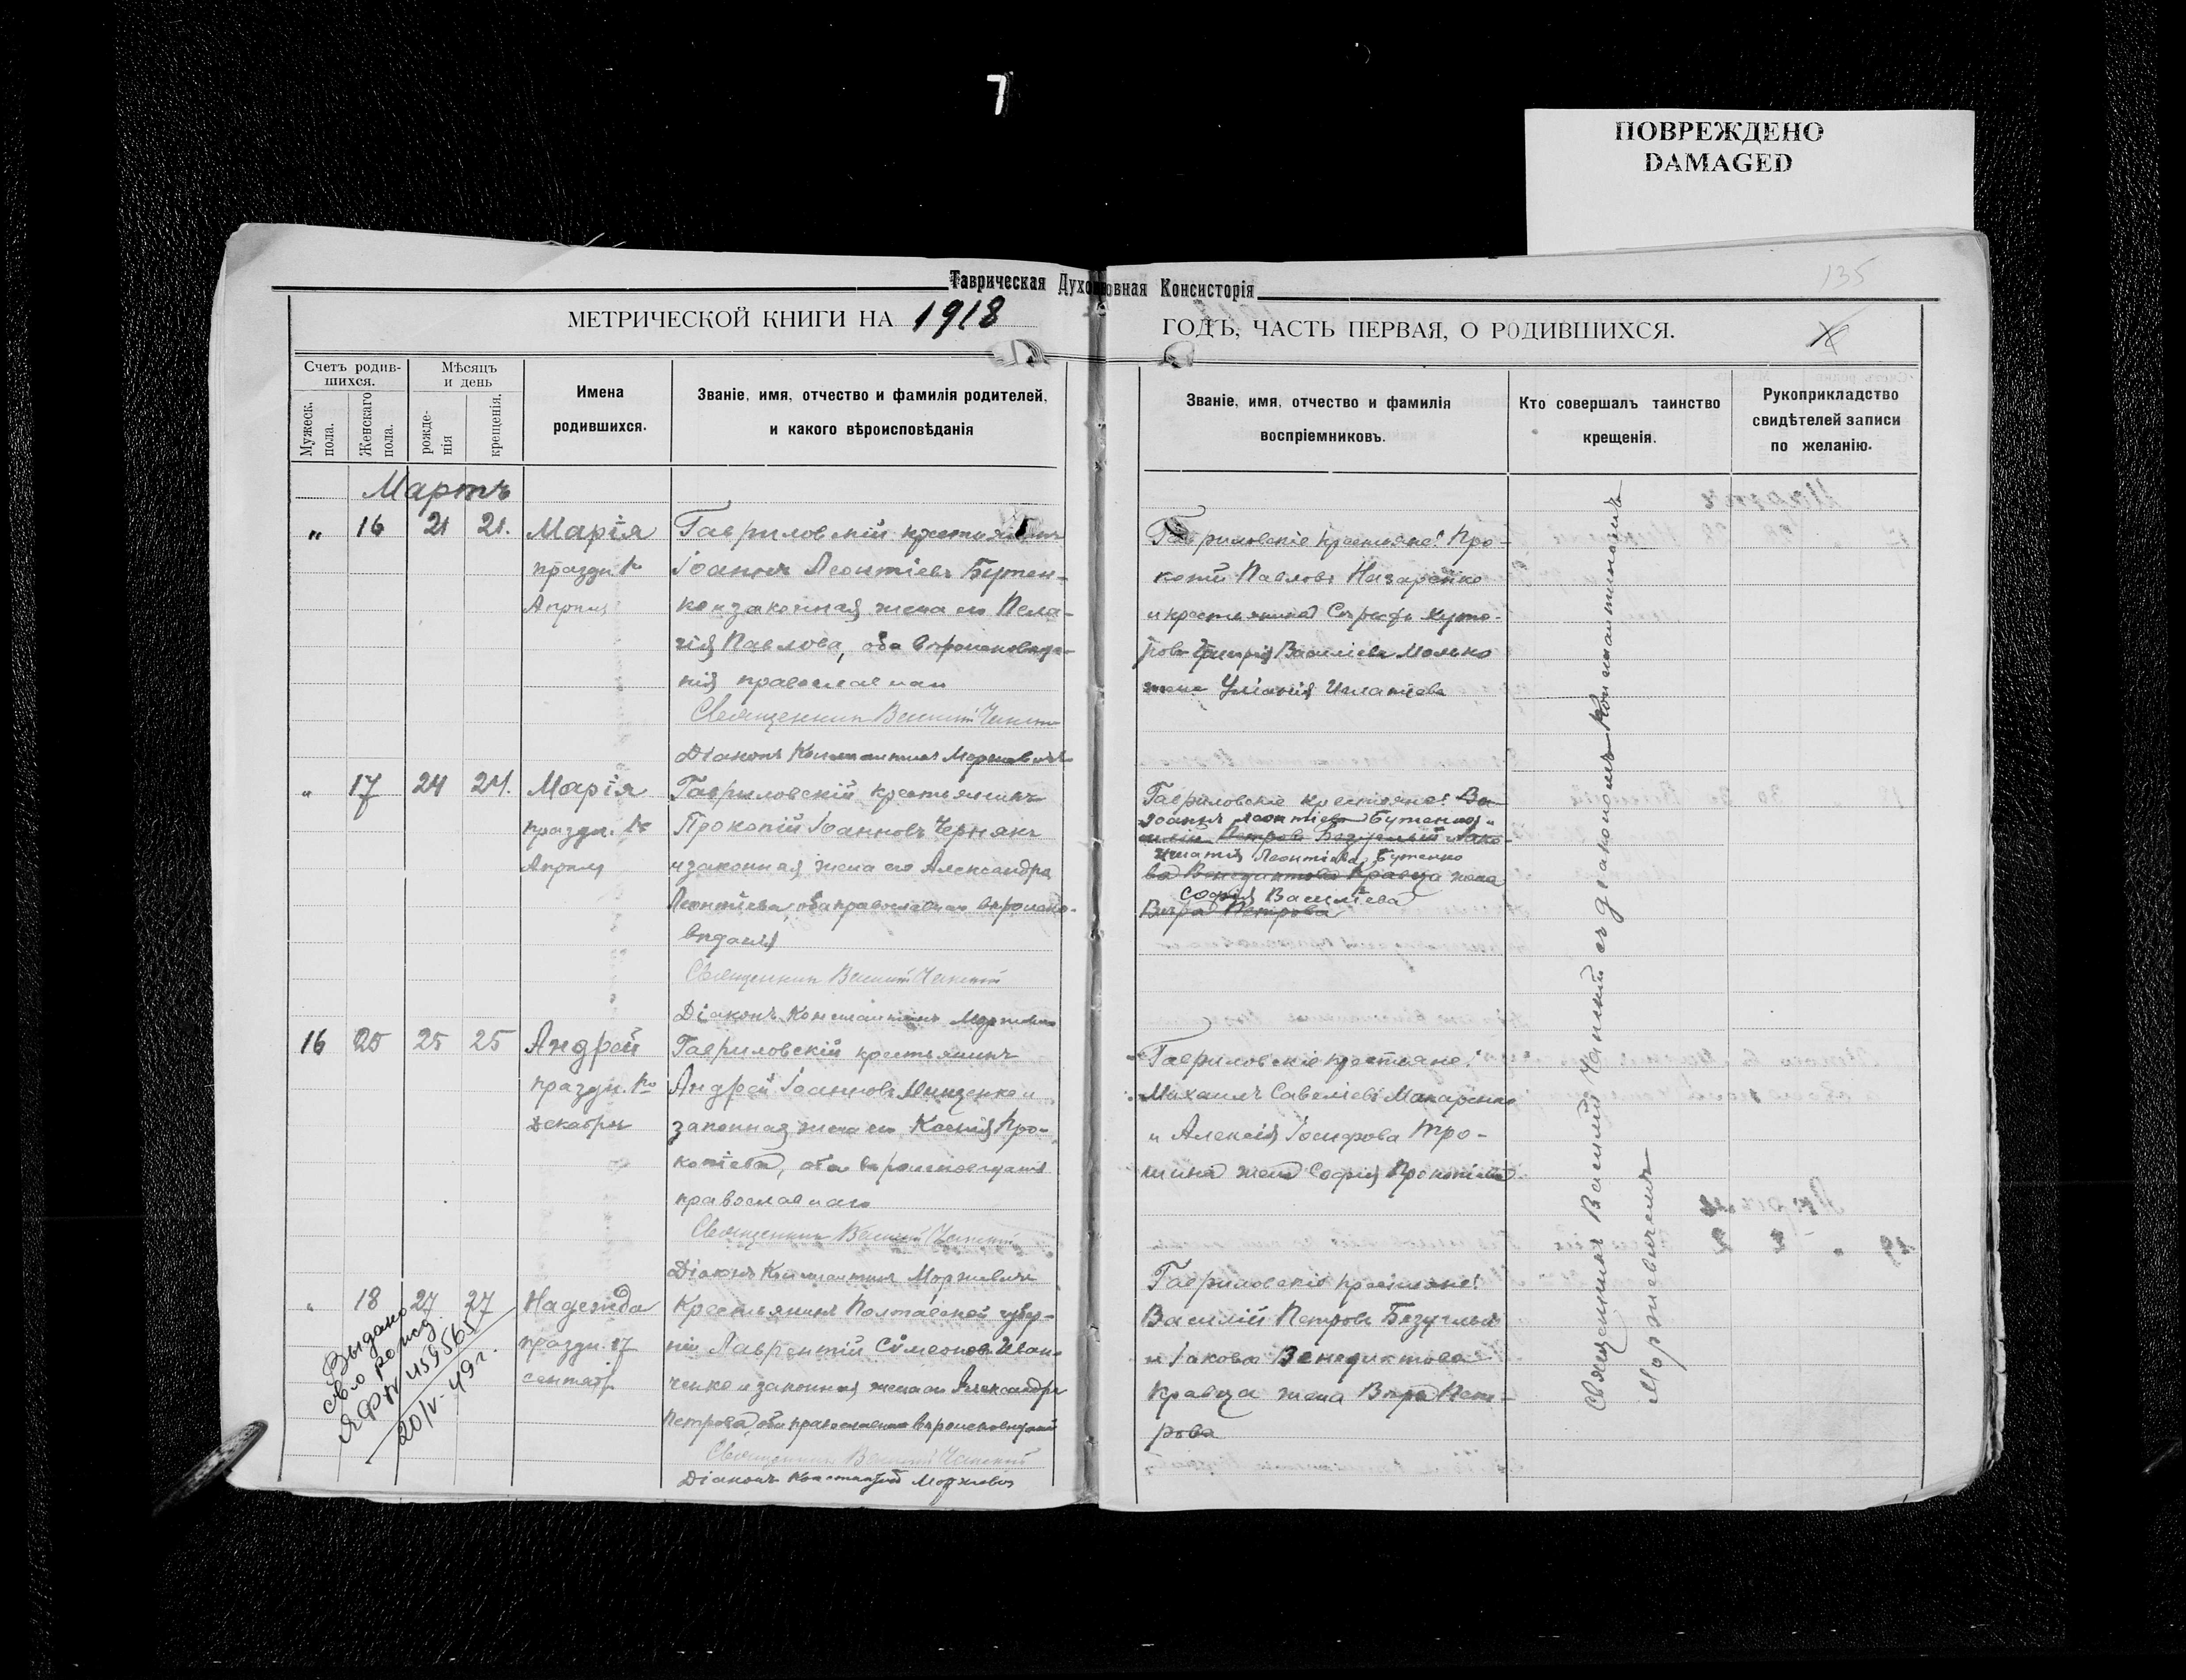 7
ПОВРЕЖДЕНО
DAMAGED
135
Таврическая Духовная Консисторія
МЕТРИЧЕСКОЙ КНИГИ НА 1918
ГОДЪ, ЧАСТЬ ПЕРВАЯ, О РОДИВШИХСЯ.
Счетъ родив-
шихся.
Мужеск.
пола.
Женскаго
пола.
Мѣсяцъ
и день
рожде-
нія
крещенія.
Имена
родившихся.
Званіе, имя, отчество и фамилія родителей,
и какого вѣроисповѣданія
Званіе, имя, отчество и фамилія
воспріемниковъ.
Кто совершалъ таинство
крещенія.
Рукоприкладство
свидѣтелей записи
по желанію.
Мартъ
" 16 21 21.
Марія
праздн. 1го
Апрѣля
Гавриловскій крестьянинъ
Іоаннъ Леонтіевъ Бутен-
ко и законная жена его Пела-
гія Павлова, оба вѣроисповѣда-
нія православнаго
Священникъ Василій Чапскій
Діаконъ Константинъ Моржевичъ
Гавриловскіе крестьяне: Про-
копій Павловъ Назаренко
и крестьянина
Василіева
жена Игнатіева
" 17 24 24.
Марія
праздн. 1го
Апрѣля
Гавриловскій крестьянинъ
Прокопій Іоанновъ Чернякъ
и законная жена его Александра
Леонтіева, оба православнаго вѣроиспо-
вѣданія
Священникъ Василій Чапскій
Діаконъ Константинъ Моржевичъ
Гавриловскіе крестьяне: Ва-
Іоаннъ Леонтіевъ Бутенко и
силій Петровъ Безуглый Іако-
Игнатія Леонтіева Бутенко
ва Венедиктова Кравца жена
Софія Василіева
Вѣра Петрова
16 25 25 25
Андрей
праздн. 1го
Декабря
Гавриловскій крестьянинъ
Андрей Іоанновъ Мищенко и
законная жена его Ксенія Про-
копіева, оба вѣроисповѣданія
православнаго
Священникъ Василій Чапскій
Діаконъ Константинъ Моржевичъ
Гавриловскіе крестьяне:
Михаилъ Савеліевъ Макаренко
и Алексія Іосифова Тро-
шина жена Софія Прокопіева
" 18 27 27
Надежда
праздн. 17
сентяб.
Крестьянинъ Полтавской губер-
ніи Лаврентій Симеоновъ Иван-
ченко и законная жена его Александра
Петрова, оба православнаго вѣроисповѣданія
Священникъ Василій Чапскій
Діаконъ Константинъ Моржевичъ
Гавриловскіе крестьяне:
Василій Петровъ Безуглый
и Іакова Венедиктова
Кравца жена Вѣра Пет-
рова
Выдано
св-во о рожд.
ЯФ № 459565
20/V-49 г.
Священникъ Василій Чапскій съ діакономъ Константиномъ
Моржевичемъ